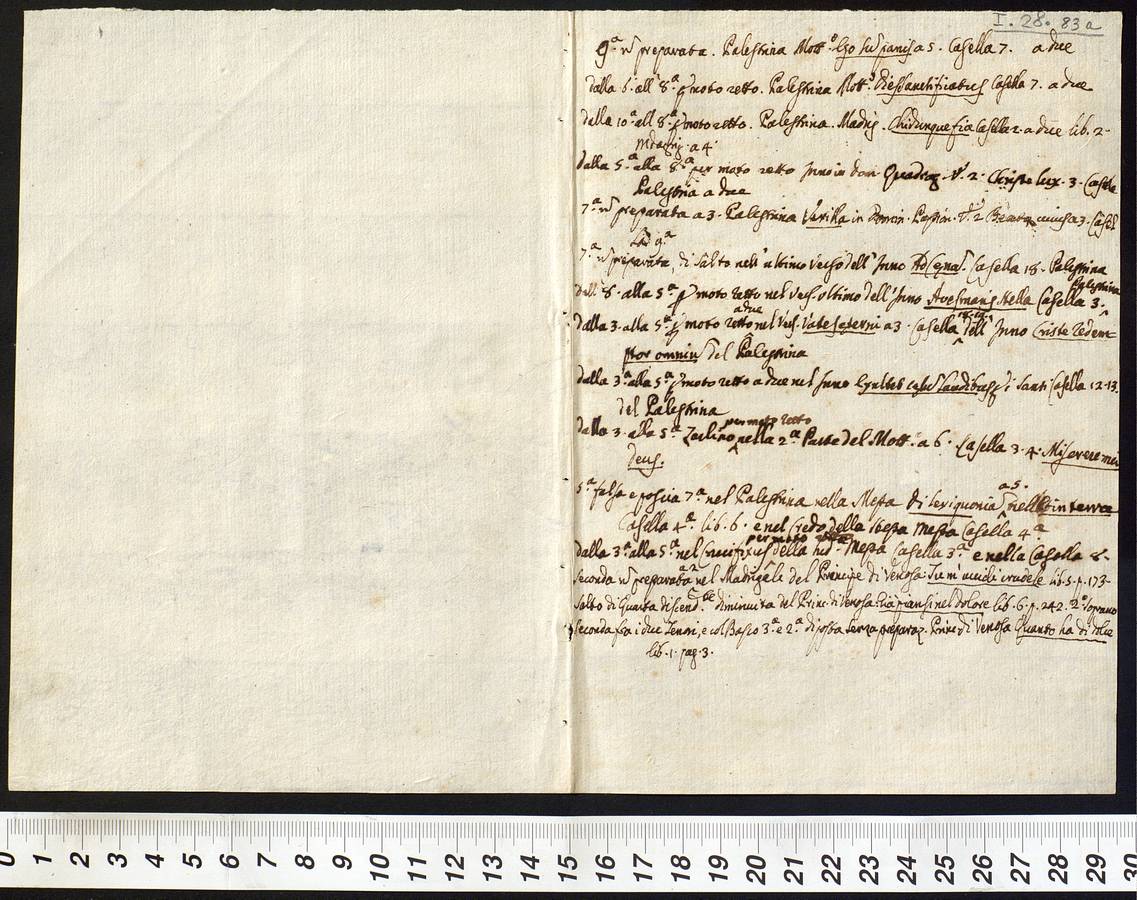 I. 28. 83a
9.ª n preparata. Palestrina Mott.º Ego su panis a 5. Casella 7. a due
dalla 6. all' 8.ª p moto retto. Palestrina Mott.º Dies sanctificatus Casella 7. a due
dalla 10.ª all 8.ª p moto retto. Palestrina. Madrig. Chiunque fia Casella 2. a due lib. 2.
Madrig. a 4
dalla 5.ª alla 8.ª per moto retto Inno in dom. Quadrag. V. 2. Christe lux. 3. Casella
Palestrina a due
7.ª n preparata a 3. Palestrina Vexilla in Domin. Passion. V. 2 Beata cuius a 3. Casel
7.ª n preparata, di salto nell' ultimo Verso dell' Inno Ad Cena. Casella 18. Palestrina
dall. 8. alla 5.ª p moto retto nel Vers. ultimo dell' Inno Ave maris stella Casella 3.
Palestrina
dalla 3. alla 5.ª p moto retto nel Vers. Vates aterni a 3. Casella dell' Inno Criste redem=
a due
ptor omniu del Palestrina
dalla 3.ª alla 5.ª p moto retto a due nel Inno Exultet caelu laudibus di Santi Casella 12-13.
del Palestrina
dalla 3. alla 5.ª Zarlino nella 2.ª Parte del Mott. a 6. Casella 3. 4. Miserere mei
per moto retto
Deus.
5.ª falsa e poscia 7.ª nel Palestrina nella Messa nell' et in terra
a 5.
Casella 4.ª lib. 6. e nel Credo della stessa Messa Casella 4.ª
dalla 3.ª alla 5.ª nel Crucifixus della Messa Casella 3.ª e nella Casella 8.
per moto retto
Seconda n preparata nel Madrigale del Principe di Venosa Tu m' uccidi crudele lib. 5. p. 173.
a 2
Salto di Quarta discend.te diminuita del Princ. di Venosa. Già piansi nel dolore lib. 6. p. 242. 2.º Soprano
Seconda fra i due Tenori, e col Basso 3.ª e 2.ª di posta senza preparaz. Princ. di Venosa Quanto ha di dolce
lib. 1. pag. 3.
0 1 2 3 4 5 6 7 8 9 10 11 12 13 14 15 16 17 18 19 20 21 22 23 24 25 26 27 28 29 30